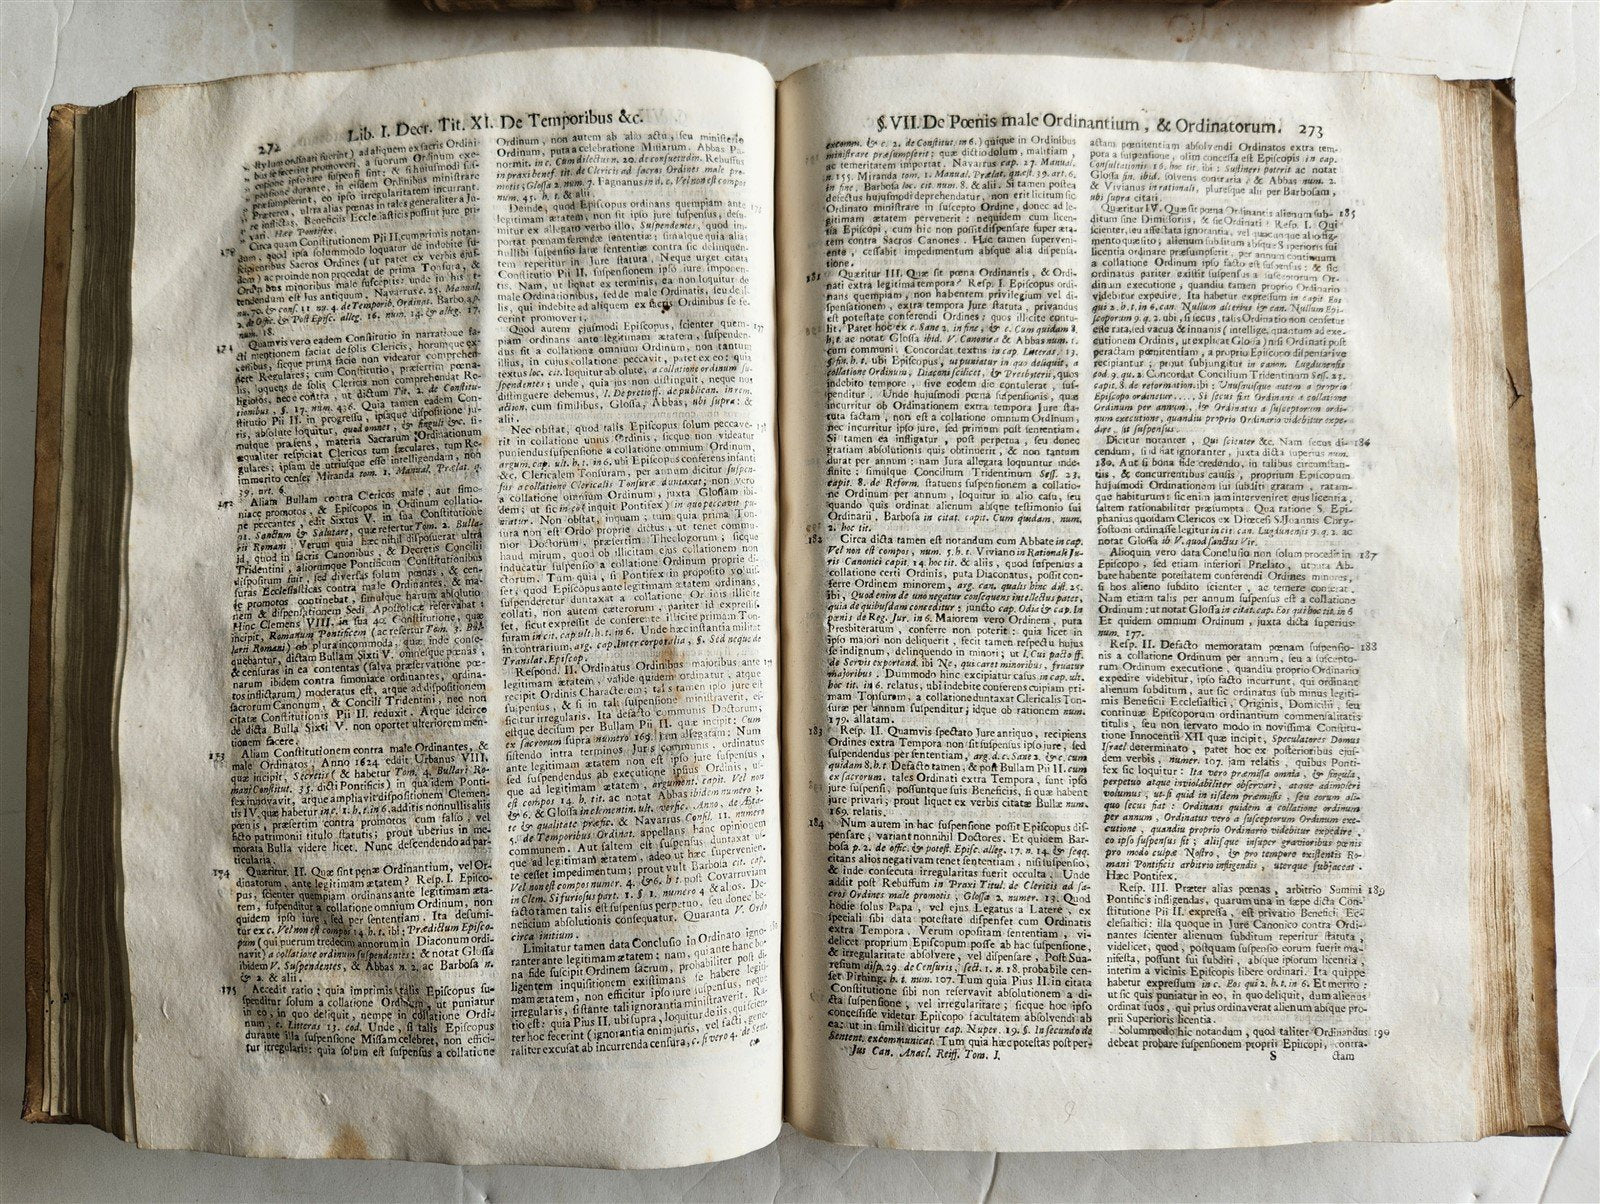 272
Lib. I. Decr. Tit. XI. De Temporibus &c.
Circa quam Constitutionem Pii II. cumprimis notan-
dum, quod ipsa solummodo loquatur de indebite su-
scipientibus Sacros Ordines (ut patet ex verbis ejus-
dem) ac proinde non procedat de prima Tonsura, &
Quamvis vero eadem Constitutio in narratione fa-
cti mentionem faciat de solis Clericis, horumque ex-
cessibus, sicque prima facie non videatur comprehen-
dere Regulares; cum Constitutio, præsertim pœna-
lis, loquens de solis Clericis non comprehendat Re-
ligiosos, nec e contra, ut dictum Tit. 2. de Constitu-
tionibus, §. 17. num. 436. Quia tamen eadem Con-
stitutio Pii II. in progressu, ipsaque dispositione ju-
ris, absolute loquitur, quod omnes, & singuli &c. si-
mulque præsens, materia Sacrarum Ordinationum
æqualiter respiciat Clericos tum sæculares, tum Re-
gulares; ipsam de utriusque esse intelligendam, non
immerito censet Miranda tom. 1. Manual. Prælat. q.
39. art. 6.
Aliam Bullam contra Clericos male, aut simo-
niace promotos, & Episcopos in Ordinum collatio-
ne peccantes, edit Sixtus V. in sua Constitutione
91. Sanctum & Salutare, quæ refertur Tom. 2. Bulla-
rii Romani. Verum quia hæc nihil disposuerat ultra
id, quod in sacris Canonibus, & Decretis Concilii
Tridentini, aliorumque Pontificum Constitutionibus
dispositum fuit, sed diversas solum pœnas, & cen-
suras Ecclesiasticas contra male Ordinantes, & ma-
le promotos continebat, simulque harum absolutio-
nem & dispensationem Sedi Apostolicæ reservabat:
Hinc Clemens VIII. in sua 40. Constitutione, quæ
incipit, Romanum Pontificem (ac refertur Tom. 3. Bul-
larii Romani) ob plura incommoda, quæ inde conse-
quebantur, dictam Bullam Sixti V. omnesque pœnas,
& censuras in ea contentas (salva præservatione pœ-
narum ibidem contra simoniace ordinantes, ordina-
tos inflictarum) moderatus est, atque ad dispositionem
sacrorum Canonum, & Concilii Tridentini, nec non
citatæ Constitutionis Pii II. reduxit. Atque ideirco
de dicta Bulla Sixti V. non oportet ulteriorem men-
tionem facere.
173 Aliam Constitutionem contra male Ordinantes, &
male Ordinatos, Anno 1624. edidit Urbanus VIII.
quæ incipit, Secretis (& habetur Tom. 4. Bullarii Ro-
mani Constitut. 35. dicti Pontificis) in qua idem Ponti-
fex innovavit, atque ampliavit dispositionem Clemen-
tis IV. quæ habetur in c. 1. h. t. in 6. additis nonnullis aliis
pœnis, præsertim contra promotos cum falso, vel
ficto patrimonii titulo statutis; prout uberius in me-
morata Bulla videre licet. Nunc descendendo ad par-
ticularia.
174 Quæritur. II. Quæ sint penæ Ordinantium, vel Or-
dinatorum, ante legitimam ætatem? Resp. I. Episco-
pus, scienter quempiam ordinans ante legitimam æta-
tem, suspenditur a collatione omnium Ordinum, non
quidem ipso jure, sed per sententiam. Ita desumi-
tur ex c. Vel non est compos 14. h. t. ibi: Prædictum Episco-
pum (qui puerum tredecim annorum in Diaconum ordi-
navit) a collatione ordinum suspendentes: & notat Glossa
ibidem V. Suspendentes, & Abbas n. 2. ac Barbosa n.
& 2. & alii.
175 Accedit ratio: quia imprimis talis Episcopus su-
spenditur solum a collatione Ordinum, ut puniatur
in eo, in quo deliquit, nempe in collatione Ordi-
num, c. Litteras 13. eod. Unde, si talis Episcopus
durante illa suspensione Missam celebret, non effici-
tur irregularis: quia solum est suspensus a collatione
Ordinum, non autem ab alio actu, seu ministerio
Ordinum, puta a celebratione Missarum. Abbas Pa-
normit. in c. Cum dilectus n. 20. de consuetudin. Rebuffus
in praxi benef. tit. de Clericis ad sacros Ordines male pro-
motis; Glossa 2. num. 7. Fagnanus in d. c. Vel non est compos
num. 45. h. t. & alii.
Deinde, quod Episcopus ordinans quempiam ante
legitimam ætatem, non sit ipso jure suspensus, desu-
mitur ex allegato verbo illo, Suspendentes, quod im-
portat pœnam ferendæ sententiæ; simul quia alia:
nullibi suspensio latæ sententiæ contra sic delinquen-
tem reperitur in Jure statuta. Neque urget citata
Constitutio Pii II. suspensionem ipso jure imponen-
tem. Nam, ut liquet ex terminis, ea non loquitur de
male Ordinationibus, sed de male Ordinatis, seu de il-
lis, qui indebite ad aliquem ex sacris Ordinibus se fe-
cerint promoveri.
Quod autem ejusmodi Episcopus, scienter quem-
piam ordinans ante legitimam ætatem, suspenden-
dus sit a collatione omnium Ordinum, non tantum
illius, in cujus collatione peccavit, patet ex eo: quia
textus loc. cit. loquitur absolute, a collatione ordinum su-
spendentes: unde, quia jus non distinguit, neque nos
distinguere debemus, l. De pretio ff. de publican. in rem
action. cum similibus, Glossa, Abbas, ubi supra: &
alii.
Nec obstat, quod talis Episcopus solum peccave-
rit in collatione unius Ordinis, sicque non videatur
puniendus suspensione a collatione omnium Ordinum,
argum. cap. ult. h. t. in 6. ubi Episcopus conferens infanti
&c. Clericalem Tonsuram, per annum dicitur suspen-
sus a collatione Clericalis Tonsuræ duntaxat; non vero
a collatione omnium Ordinum, juxta Glossam ibi-
dem; ut sic in eo (inquit Pontifex) in quo peccavit pu-
niatur. Non obstat, inquam; tum quia prima Ton-
sura non est Ordo proprie dictus, ut tenet commu-
nior Doctorum, præsertim Theologorum; sicque
haud mirum, quod ob illicitam ejus collationem non
inducatur suspensio a collatione Ordinum proprie di-
ctorum. Tum quia, si Pontifex in proposito voluis-
set, quod Episcopus ante legitimam ætatem ordinans,
suspenderetur duntaxat a collatione Ordinis illicite
collati, non autem cæterorum, pariter id expressis-
set, sicut expressit de conferente illicite primam Ton-
suram in cit. cap. ult. h. t. in 6. Unde hæc instantia militat
in contrarium, arg. cap. Inter corporalia, §. Sed neque de
Translat. Episcop.
Respond. II. Ordinatus Ordinibus majoribus ante
legitimam ætatem, valide quidem ordinatur, atque
recipit Ordinis Characterem; talis tamen ipso jure est
suspensus, & si in tali suspensione ministraverit, ef-
ficitur irregularis. Ita defacto communis Doctorum;
estque decisum per Bullam Pii II. quæ incipit: Cum
ex sacrorum supra numero 169. jam allegatam: Num
sistendo intra terminos Juris communis, ordinatus
ante legitimam ætatem non est ipso jure suspensus,
sed suspendendus ab executione ipsius Ordinis, us-
que ad legitimam ætatem, argument. capit. Vel non
est compos 14. h. tit. ac notat Abbas ibidem numero 3.
& 6. & Glossa in clementin. ult. verfic. Anno, de Æta-
te & qualitate præfic. & Navarrus Consil. 11. numero
5. de Temporibus Ordinat. appellans hanc opinionem
communem. Aut saltem est suspensus duntaxat us-
que ad legitimam ætatem, adeo ut hæc supervenien-
te cesset impedimentum; prout vult Barbosa cit. cap.
Vel non est compos numer. 4. & 6. h. t. post Covarruviam
in Clem. Si furiosus part. 1. §. 1. numero 4 & alios. De-
facto tamen talis est suspensus perpetuo, seu donec be-
neficium absolutionis consequatur. Quaranta V. Ordo
circa initium.
Limitatur tamen data Conclusio in Ordinato igno-
ranter ante legitimam ætatem: nam, qui ante hanc bo-
na fide suscipit Ordinem sacrum, probabiliter post di-
ligentem inquisitionem existimans se habere legiti-
mam ætatem, non efficitur ipso jure suspensus, neque
irregularis, sistante tali ignorantia ministraverit. Ra-
tio est: quia Pius II. ubi supra, loquitur de iis, qui scien-
ter hoc fecerint (ignorantia enim juris, vel facti, gene-
raliter excusat ab incurrenda censura, c. si vero 4. de Sent.
ex
§. VII. De Pœnis male Ordinantium, & Ordinatorum. 273
excomm. & c. 2. de Constitut. in 6.) quique in Ordinibus
ministrare præsumpserit; quæ dictio dolum, malitiam,
ac temeritatem importat. Navarrus cap. 27. Manual.
n. 155. Miranda tom. 1. Manual. Prælat. quæst. 39. art. 6.
in fine, Barbosa loc. cit. num. 8. & alii. Si tamen postea
defectus hujusmodi deprehendatur, non erit licitum sic
Ordinato ministrare in suscepto Ordine, donec ad le-
gitimam ætatem pervenerit: nequidem cum licen-
tia Episcopi, cum hic non possit dispensare super æta-
tem contra Sacros Canones. Hac tamen superveni-
ente, cessabit impedimentum absque alia dispensa-
tione.
181 Quæritur III. Quæ sit pœna Ordinantis, & Ordi-
nati extra legitima tempora? Resp. I. Episcopus ordi-
nans quempiam, non habentem privilegium vel di-
spensationem, extra tempora Jure statuta, privandus
est potestate conferendi Ordines; quos illicite contu-
lit. Patet hoc ex c. Sane 2. in fine, & c. Cum quidam 8.
h. t. ac notat Glossa ibid. V. Canonica & Abbas num. 1.
cum communi. Concordat textus in cap. Literas. 13.
§. fin. h. t. ubi Episcopus, ut puniatur in quo deliquit, a
collatione Ordinum, Diaconi scilicet, & Presbyterii, quos
indebito tempore, sive eodem die contulerat, sus-
penditur. Unde hujusmodi pœna suspensionis, quæ
incurritur ob Ordinationem extra tempora Jure sta-
tuta factam, non est a collatione omnium Ordinum,
nec incurritur ipso jure, sed primum post sententiam.
Si tamen ea infligatur, post perpetua, seu donec
gratiam absolutionis quis obtinuerit, & non tantum
durat per annum; nam Jura allegata loquuntur inde-
finite: simulque Concilium Tridentinum Sess. 23.
capit. 8. de Reform. statuens suspensionem a collatio-
ne Ordinum per annum, loquitur in alio casu, seu
quando quis ordinat alienum absque testimonio sui
Ordinarii, Barbosa in citat. capit. Cum quidam, num.
2. hoc tit.
182 Circa dicta tamen est notandum cum Abbate in cap.
Vel non est compos, num. 5. h. t. Viviano in Rationale Ju-
ris Canonici capit. 14. hoc tit. & aliis, quod suspensus a
collatione certi Ordinis, puta Diaconatus, possit con-
ferre Ordinem minorem, arg. can. qualis hinc dist. 25.
ibi, Quod enim de uno negatur consequens intellectus patet,
quia de quibusdam conceditur: juncto cap. Odia & cap. In
pœnis de Reg. Jur. in 6. Majorem vero Ordinem, puta
Presbiteratum, conferre non poterit: quia licet in
ipso majori non deliquerit, fecit tamen respectu hujus
se indignum, delinquendo in minori; ut l. Cui pacto ff.
de Servis exportand. ibi Ne, qui caret minoribus, fruatur
majoribus. Dummodo hinc excipiatur casus in cap. ult.
hoc tit. in 6. relatus, ubi indebite conferens cuipiam pri-
mam Tonsuram, a collatione duntaxat Clericalis Ton-
suræ per annum suspenditur; idque ob rationem num.
179. allatam.
183 Resp. II. Quamvis spectato Jure antiquo, recipiens
Ordines extra Tempora non sit suspensus ipso jure, sed
suspendendus per sententiam, arg. d. c. Sane 2. & c. cum
quidam 8. h. t. Defacto tamen, & post Bullam Pii II. cum
ex sacrorum. tales Ordinati extra Tempora, sunt ipso
jure suspensi, possuntque suis Beneficiis, si quæ habent
jure privari; prout liquet ex verbis citatæ Bullæ num.
169. relatis.
184 Num autem in hac suspensione possit Episcopus dis-
pensare; variant nonnihil Doctores. Et quidem Bar-
bosa p. 2. de offic. & potest. Episc. alleg. 17. n. 14. & seqq.
citans alios negativam tenet sententiam, nisi suspensio,
& inde consecuta irregularitas fuerit occulta. Unde
addit post Rebuffum in Praxi Titul. de Clericis ad sa-
cros Ordines male promotis, Glossa 2. numer. 13. Quod
hodie solus Papa, vel ejus Legatus a Latere, ex
speciali sibi data potestate dispenset cum Ordinatis
extra Tempora. Verum opositam sententiam, vi-
delicet proprium Episcopum posse ab hac suspensione,
& irregularitate absolvere, vel dispensare, Post Sua-
resium disp. 29. de Censuris, sect. 1. n. 18. probabile cen-
set Pirhing. h. t. num. 107. Tum quia Pius II. in citata
Constitutione sibi non reservavit absolutionem a di-
cta suspensione, vel irregularitate; sicque hoc ipso
concessisse videtur Episcopo facultatem absolvendi ab
ea: ut in simili dicitur cap. Nuper. 29. §. In secundo de
Sentent. excommunicat. Tum quia hæc potestas post per-
Jus Can. Anacl. Reiff. Tom. I.
actam pœnitentiam absolvendi Ordinatos extra tem-
pora a suspensione, olim concessa est Episcopis in cap.
Consultationis 16. hoc tit. ibi: Sustineri poterit ac notat
Glossa fin. ibid. solvens contraria, & Abbas num. 2.
& Vivianus in rationali, pluresque alii per Barbosam,
ubi supra citati.
Quæritur IV. Quæ sit pœna Ordinantis alienum sub- 185
ditum sine Dimissoriis, & sic Ordinati? Resp. I. Qui
scienter, seu affectata ignorantia, vel quacunque alio fig-
mento quæsito; alienum subditum absque Superioris sui
licentia ordinare præsumpserit, per annum continuum
a collatione Ordinum ipso facto est suspensus; & sic
ordinatus pariter existit suspensus a susceptorum Or-
dinum executione, quandiu tamen proprio Ordinario
videbitur expedire. Ita habetur expressum in capit. Eos
qui 2. h. t. in 6. cap. Nullum alterius & can. Nullum Epi-
scoporum 9. q. 2. ubi, si secus, talis Ordinatio non censetur
esse rata, sed vacua & innanis (intellige, quantum ad exe-
cutionem Ordinis, ut explicat Glossa) nisi Ordinati post
peractam pœnitentiam, a proprio Episcopo dispensative
recipiantur; prout subjungitur in canon. Lugdunensis
eod. 9. qu. 2. Concordat Concilium Tridentinum Sess. 23.
capit. 8. de reformation. ibi: Unusquisque autem a proprio
Episcopo ordinetur..... Si secus fiat Ordinans a collatione
Ordinum per annum, & Ordinatus a susceptorum ordi-
num executione, quandiu proprio Ordinario videbitur expe-
dire, sit suspensus.
Dicitur notanter, Qui scienter &c. Nam secus di- 186
cendum, si id fiat ignoranter, juxta dicta superius num.
180. Aut si bona fide credendo, in talibus circumstan-
tiis, & concurrentibus causis, proprium Episcopum
hujusmodi Ordinationem sui subditi gratam, ratam-
que habiturum: sic enim jam interveniret ejus licentia,
saltem rationabiliter præsumpta. Qua ratione S. Epi-
phanius quondam Clericos ex Diœcesi S. Joannis Chry-
sostomi ordinasse legitur in cit. can. Lugdunensis 9. q. 2. ac
notat Glossa ib. V. quod sanctus Vir.
Alioquin vero data Conclusio non solum procedit in 187
Episcopo, sed etiam inferiori Prælato, ut puta Ab-
bate habente potestatem conferendi Ordines minores,
si hos alieno subdito scienter, ac temere conferat.
Nam etiam talis per annum suspensus est a collatione
Ordinum: ut notat Glossa in citat. cap. Eos qui hoc tit. in 6
Et quidem omnium Ordinum, juxta dicta superius
num. 177.
Resp. II. Defacto memoratam pœnam suspensio- 188
nis a collatione Ordinum per annum, seu a suscepto-
rum Ordinum executione, quandiu proprio Ordinario
expedire videbitur, ipso facto incurrunt, qui ordinant
alienum subditum, aut sic ordinatus sub minus legiti-
mis Beneficii Ecclesiastici, Originis, Domicilii, seu
continuæ Episcoporum ordinantium commensalitatis
titulis, seu non servato modo in novissima Constitu-
tione Innocentii XII. quæ incipit, Speculatores Domus
Israel determinato, patet hoc ex posterioribus ejus-
dem verbis, numer. 107. jam relatis, quibus Ponti-
fex sic loquitur: Ita vero præmissa omnia, & singula,
perpetuo atque inviolabiliter observari, atque adimpleri
volumus, ut si quid in iisdem præmissis, seu eorum ali-
quo secus fiat: Ordinans quidem a collatione ordinum
per annum, Ordinatus vero a susceptorum Ordinum exe-
cutione, quandiu proprio Ordinario videbitur expedire,
eo ipso suspensus sit; aliisque insuper gravioribus pœnis
pro modo culpæ Nostro, & pro tempore existentis Ro-
mani Pontificis arbitrio infligendis, uterque subjaceat.
Hæc Pontifex.
Resp. III. Præter alias pœnas, arbitrio Summi 189
Pontificis infligendas, quarum una in sæpe dicta Con-
stitutione Pii II. expressa, est privatio Beneficii Ec-
clesiastici: illa quoque in Jure Canonico contra Ordi-
nantes scienter alienum subditum reperitur statuta,
videlicet, quod, postquam suspensio eorum fuerit ma-
nifesta, possunt sui subditi, absque ipsorum licentia,
interim a vicinis Episcopis libere ordinari. Ita quippe
habetur expressum in c. Eos qui 2. h. t. in 6. Et merito:
ut sic quis puniatur in eo, in quo deliquit, dum alienos
ordinat suos, qui prius ordinaverat alienum absque pro-
prii Superioris licentia.
Solummodo hic notandum, quod taliter Ordinandus 190
debeat probare suspensionem proprii Episcopi, contra-
S ctam